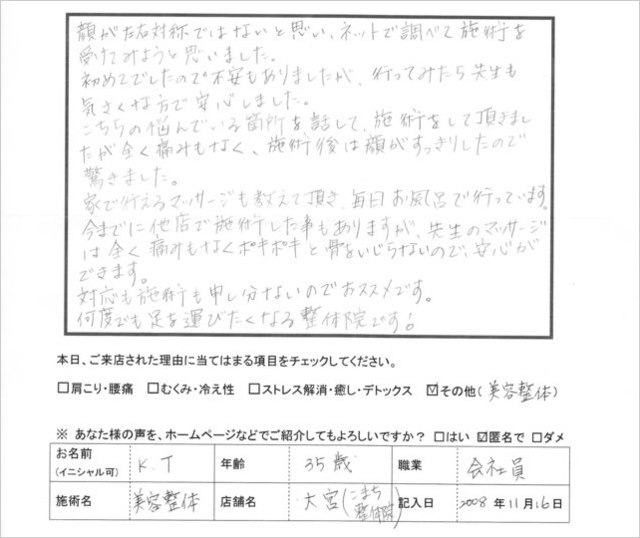 顔が左右対称ではないと思い、ネットで調べて施術を
受けてみようと思いました。
初めてでしたので不安もありましたが、行ってみたら先生も
気さくな方で安心しました。
こちらの悩んでいる箇所を話して、施術をして頂きまし
たが全く痛みもなく、施術後は顔がすっきりしたので
驚きました。
家で行えるマッサージも教えて頂き、毎日お風呂で行っています。
今までに他店で施術した事もありますが、先生のマッサージ
は全く痛みもなくボキボキと骨をいじらないので、安心が
できます。
対応も施術も申し分ないのでおススメです。
何度でも足を運びたくなる整体院です!
本日、ご来店された理由に当てはまる項目をチェックしてください。
□肩こり・腰痛 □むくみ・冷え性 □ストレス解消・癒し・デトックス ☑その他(美容整体)
※ あなた様の声を、ホームページなどでご紹介してもよろしいですか? □はい ☑匿名で □ダメ
お名前 (イニシャル可) K.T 年齢 35歳 職業 会社員
施術名 美容整体 店舗名 大宮(こまち整体院) 記入日 2008年11月16日